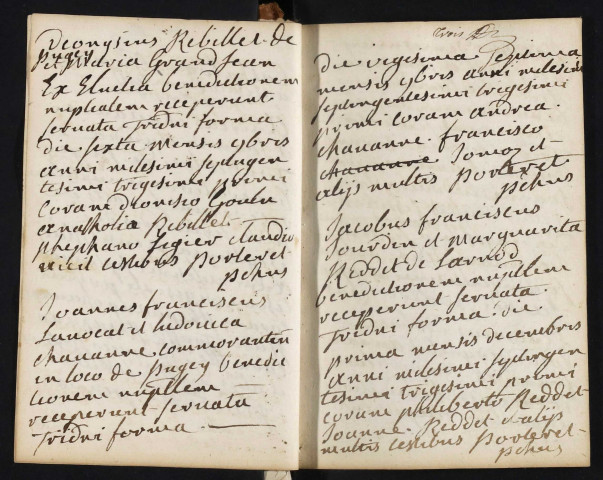 Dionysius Rebillet de
pugey et Maria Grand Jean
Ex Elnelia benedictionem
nuptialem receperunt
servata Tridni forma
die sexta mensis 9bris
anni milesimi septugen
tesimi trigesimi primi
coram dionisio Goulu
anathobia Rebillet
stephano ligier claudio
viril testibus porteret
pchus
Joannes franciscus
Lanocat et ludouica
chauanne commorantes
in loco de pugey benedic
tionem nuptlem
receperunt servata
Tridni forma
trois
die vigesima septima
mensis 9bris anni milesimi
septingentesimi trigesimi
primi coram andrea
chauanne francisco
chauanne Jomoz et
alijs multis porteret
pchus
Jacobus franciscus
Jourdin et Marguarita
Reddet de Larnod
benedictionem nuptlem
receperunt servata
Tridni forma die
prima mensis decembris
anni milesimi septingen
tesimi trigesimi primi
coram philiberto Reddet
Joanne Reddet et alijs
multis testibus porteret
pchus